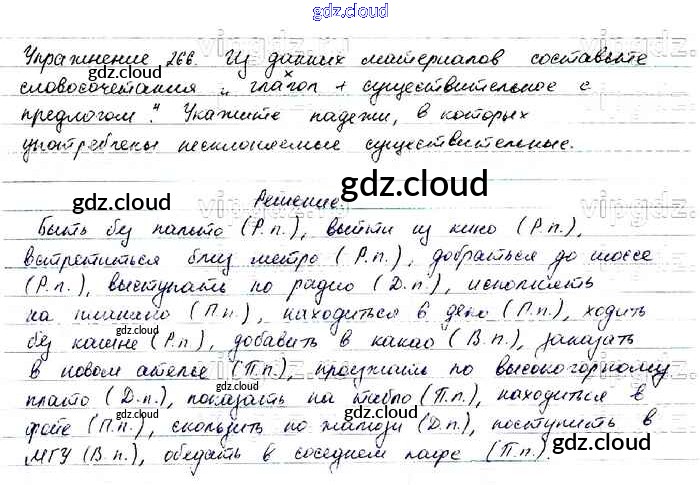 gdz.cloud
Упражнение 266. Из данных материалов составьте
словосочетания "глагол + существительное с
предлогом". Укажите падежи, в которых
употреблены несклоняемые существительные.
Решение.
Быть без пальто (Р.п.), выйти из кино (Р.п.),
встретиться близ метро (Р.п.), добраться до шоссе
(Р.п.), выступать по радио (Д.п.), исполнять
на пианино (П.п.), находиться в депо (П.п.), ходить
без кашне (Р.п.), добавить в какао (В.п.), заказать
в новом ателье (П.п.), проезжать по высокогорному
плато (Д.п.), показать на табло (П.п.), находиться в
фойе (П.п.), скользить по жалюзи (Д.п.), поступить в
МГУ (В.п.), обедать в соседнем кафе (П.п.).
gdz.cloud
gdz.cloud
gdz.cloud
gdz.cloud
gdz.cloud
gdz.cloud
gdz.cloud
gdz.cloud
gdz.cloud
gdz.cloud
gdz.cloud